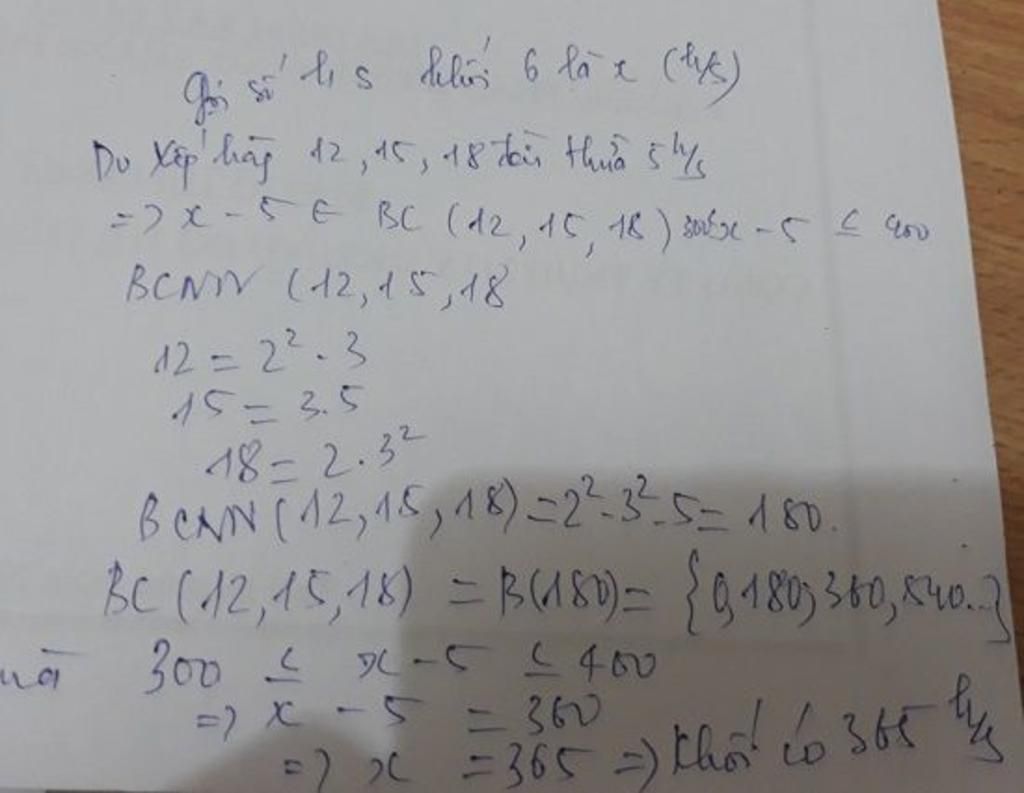 Gọi số h s khối 6 là x (h/s)
Do xếp hàng 12, 15, 18 đều thừa 5 h/s
=> x - 5 ∈ BC (12, 15, 18) 300≤x - 5 ≤ 400
BCNN (12, 15, 18
12 = 2² . 3
15 = 3.5
18 = 2 . 3²
BCNN (12, 15, 18) = 2² . 3² . 5 = 180.
BC (12, 15, 18) = B(180) = {0,180;360,540...}
mà 300 ≤ x - 5 ≤ 400
=> x - 5 = 360
=> x = 365 => Khối có 365 h/s